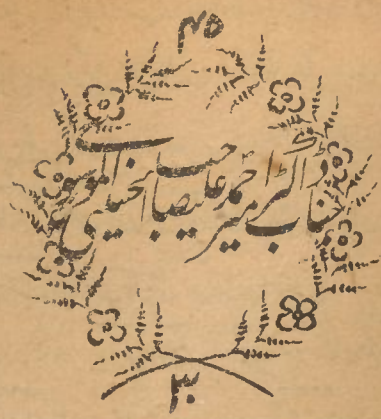 جناب ڈاکٹر میر احمد علیصاحب الموسوی
۳۰